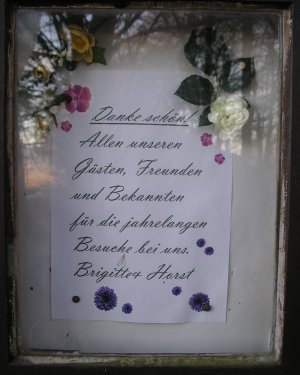 Danke schön!
Allen unseren
Gästen, Freunden
und Bekannten
für die jahrelangen
Besuche bei uns.
Brigitte+ Horst